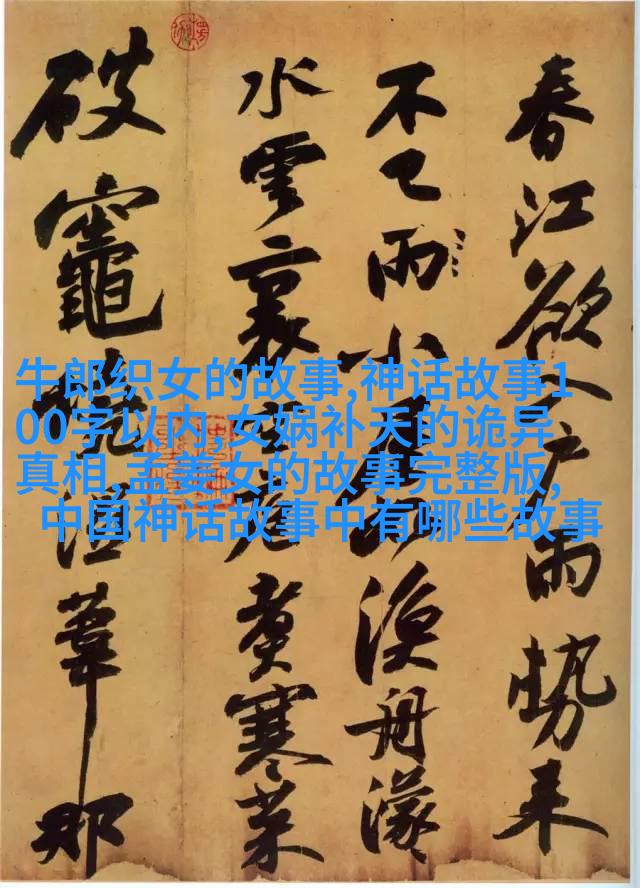 春江欲入戶雨勢来
不已雨小屋如漁舟濛
水雲裏空庖煮寒菜
破竈燒濕葦那
牛郎织女的故事,神话故事1
00字以内,女娲补天的诡异
真相,孟姜女的故事完整版,
中国神话故事中有哪些故事